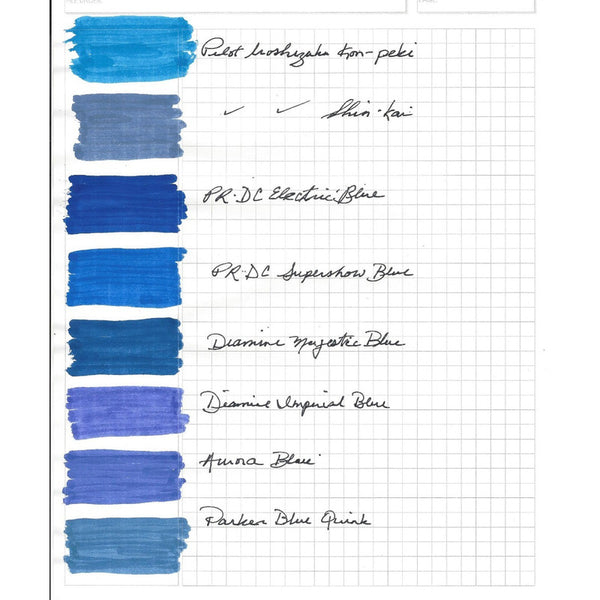 Pilot Iroshizuku Kon-peki
✓ ✓ Shin-kai
PR-DC Electric Blue
PR-DC Supershow Blue
Diamine Majestic Blue
Diamine Imperial Blue
Aurora Blue
Parker Blue Quink